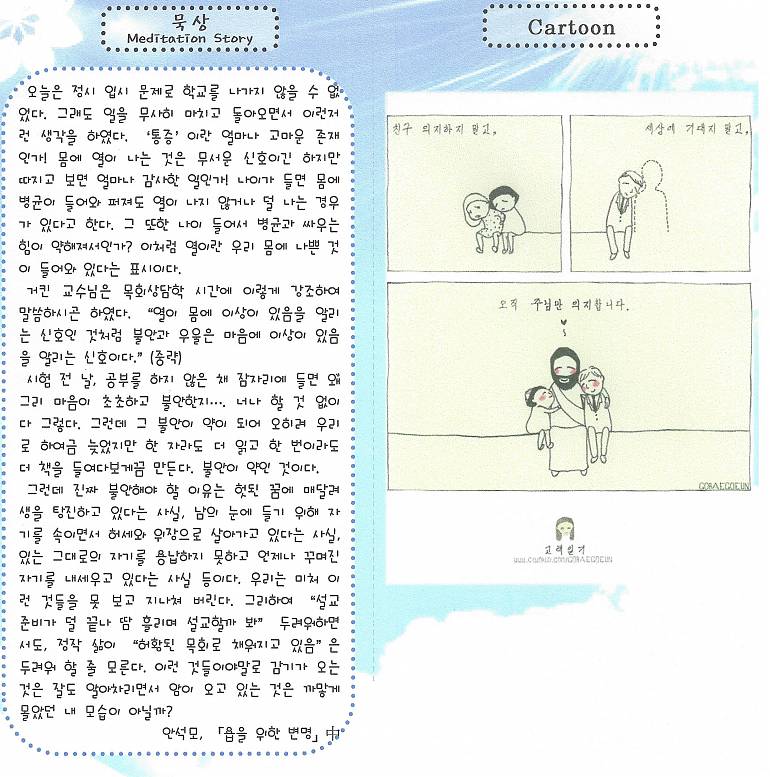 묵상
Meditation Story
오늘은 정시 입시 문제로 학교를 나가지 않을 수 없
었다. 그래도 일을 무사히 마치고 돌아오면서 이런저
런 생각을 하였다. ‘통증’ 이란 얼마나 고마운 존재
인가! 몸에 열이 나는 것은 무서운 신호이긴 하지만
따지고 보면 얼마나 감사한 일인가! 나이가 들면 몸에
병균이 들어와 퍼져도 열이 나지 않거나 덜 나는 경우
가 있다고 한다. 그 또한 나이 들어서 병균과 싸우는
힘이 약해져서인가? 이처럼 열이란 우리 몸에 나쁜 것
이 들어와 있다는 표시이다.
거킨 교수님은 목회상담학 시간에 이렇게 강조하여
말씀하시곤 하였다. “열이 몸에 이상이 있음을 알리
는 신호인 것처럼 불안과 우울은 마음에 이상이 있음
을 알리는 신호이다.” (중략)
시험 전 날, 공부를 하지 않은 채 잠자리에 들면 왜
그리 마음이 초초하고 불안한지…. 너나 할 것 없이
다 그렇다. 그런데 그 불안이 약이 되어 오히려 우리
로 하여금 늦었지만 한 자라도 더 읽고 한 번이라도
더 책을 들여다보게끔 만든다. 불안이 약인 것이다.
그런데 진짜 불안해야 할 이유는 헛된 꿈에 매달려
생을 탕진하고 있다는 사실, 남의 눈에 들기 위해 자
기를 속이면서 허세와 위장으로 살아가고 있다는 사실,
있는 그대로의 자기를 용납하지 못하고 언제나 꾸며진
자기를 내세우고 있다는 사실 등이다. 우리는 미처 이
런 것들을 못 보고 지나쳐 버린다. 그리하여 “설교
준비가 덜 끝나 땀 흘리며 설교할까 봐” 두려워하면
서도, 정작 삶이 “허황된 목회로 채워지고 있음” 은
두려워 할 줄 모른다. 이런 것들이야말로 감기가 오는
것은 잘도 알아차리면서 암이 오고 있는 것은 까맣게
몰았던 내 모습이 아닐까?
안석모, 「욥을 위한 변명」中
Cartoon
친구 의지하지 말고,
세상에 기대지 말고,
오직 주님만 의지합니다.
GORAEGOEUN
고래일기
www.cyworld.com/GORAEGOEUN